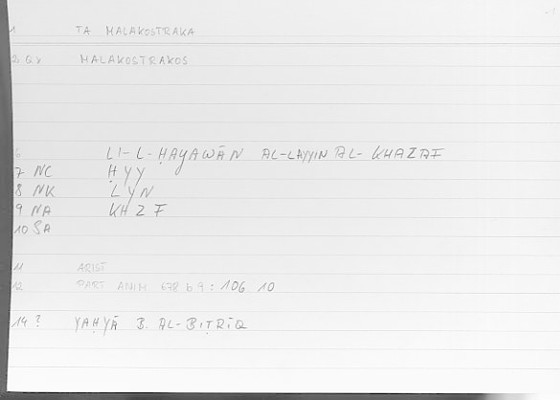 1 TA MALAKOSTRAKA
2 GK MALAKOSTRAKOS
6 LI-L-ḤAYAWĀN AL-LAYYIN AL-KHAZAF
7 NC ḤYY
8 NK LYN
9 NA KHZF
10 SA
11 ARIST
12 PART ANIM 678 b 9 : 106 10
14 ? YAḤYĀ B. AL-BIṬRĪQ